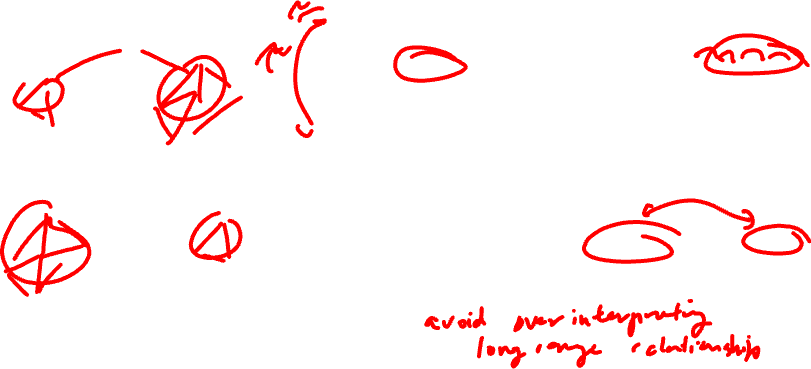 avoid over interpreting
long range relationships